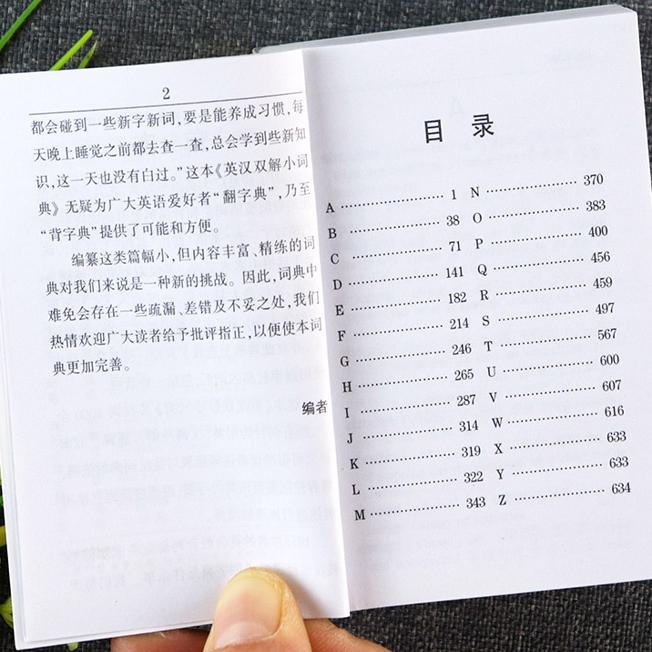 2
都会碰到一些新字新词，要是能养成习惯，每
天晚上睡觉之前都去查一查，总会学到些新知
识，这一天也没有白过。”这本《英汉双解小词
典》无疑为广大英语爱好者“翻字典”，乃至
“背字典”提供了可能和方便。
编纂这类篇幅小、但内容丰富、精练的词
典对我们来说是一种新的挑战。因此，词典中
难免会存在一些疏漏、差错及不妥之处，我们
热情欢迎广大读者给予批评指正，以便使本词
典更加完善。
编者
目 录
A ·················· 1
B ·················· 38
C ·················· 71
D ·················· 141
E ·················· 182
F ·················· 214
G ·················· 246
H ·················· 265
I ·················· 287
J ·················· 314
K ·················· 319
L ·················· 322
M ·················· 343
N ·················· 370
O ·················· 383
P ·················· 400
Q ·················· 456
R ·················· 459
S ·················· 497
T ·················· 567
U ·················· 600
V ·················· 607
W ·················· 616
X ·················· 633
Y ·················· 633
Z ·················· 634